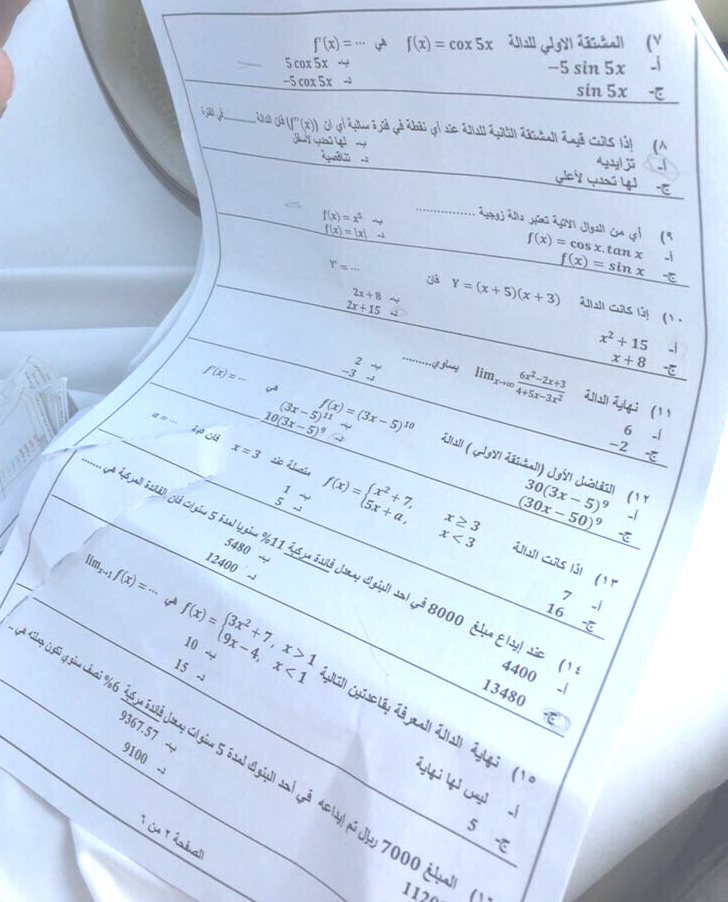 ٧) المشتقة الاولي للدالة f(x) = cox 5x هي f'(x) = ...
أ- −5 sin 5x ب- 5 cox 5x
ج- sin 5x د- −5 cox 5x
٨) إذا كانت قيمة المشتقة الثانية للدالة عند أي نقطة في فترة سالبة أي ان (f''(x)) فان الدالة............في الفترة
أ- تزايديه ب- لها تحدب لأسفل
ج- لها تحدب لأعلي د- تناقصية
٩) أي من الدوال الاتية تعتبر دالة زوجية ................
أ- f(x) = cos x. tan x ب- f(x) = x⁵
ج- f(x) = sin x د- f(x) = |x|
١٠) إذا كانت الدالة Y = (x + 5)(x + 3) فان Y' = ...
أ- x² + 15 ب- 2x + 8
ج- x + 8 د- 2x + 15
١١) نهاية الدالة lim x→∞ (6x²−2x+3)/(4+5x−3x²) يساوي.........
أ- 6 ب- 2
ج- −2 د- −3
١٢) التفاضل الأول (المشتقة الاولي) للدالة f(x) = (3x − 5)¹⁰ هي f'(x) = ...
أ- 30(3x − 5)⁹ ب- (3x − 5)¹¹
ج- (30x − 50)⁹ د- 10(3x − 5)⁹
١٣) اذا كانت الدالة f(x) = { x² + 7, x ≥ 3 ; 5x + a, x < 3 متصلة عند x = 3 فان قيمة a = ...
أ- 7 ب- 1
ج- 16 د- 5
١٤) عند إيداع مبلغ 8000 في احد البنوك بمعدل فائدة مركبة 11% سنويا لمدة 5 سنوات فان الفائدة المركبة هي .......
أ- 4400 ب- 5480
ج- 13480 د- 12400
١٥) نهاية الدالة المعرفة بقاعدتين التالية f(x) = { 3x² + 7, x > 1 ; 9x − 4, x < 1 هي lim x→1 f(x) = ...
أ- ليس لها نهاية ب- 10
ج- 5 د- 15
المبلغ 7000 ريال تم إيداعه في احد البنوك لمدة 5 سنوات بمعدل فائدة مركبة 6% نصف سنوي تكون جملته هي ..
ب- 9367.57
د- 9100
الصفحة ٢ من ٦